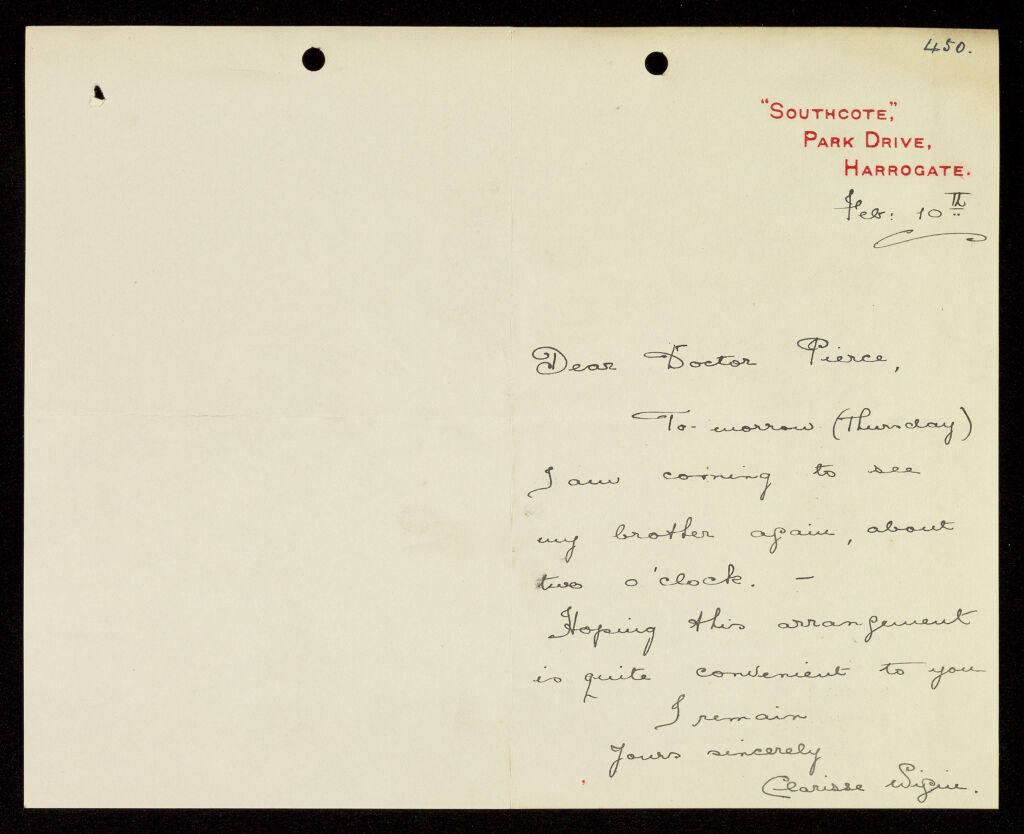 450.
"SOUTHCOTE,"
PARK DRIVE,
HARROGATE.
Feb: 10th
Dear Doctor Pierce,
To-morrow (Thursday)
I am coming to see
my brother again, about
two o'clock. —
Hoping this arrangement
is quite convenient to you
I remain
Yours sincerely
Clarisse